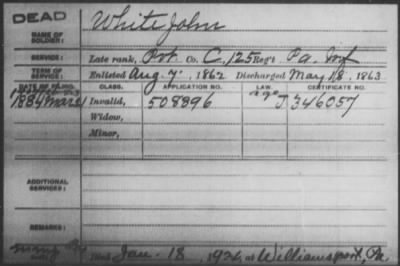 DEAD
White John
NAME OF SOLDIER:
SERVICE: Late rank, Pvt Co. C, 125 Reg't Pa. Inf
TERM OF SERVICE: Enlisted Aug. 1862 Discharged May 18, 1863
DATE OF FILING. CLASS. APPLICATION NO. LAW. CERTIFICATE NO.
1884 Mar Invalid, 508896 age J 346057
Widow,
Minor,
ADDITIONAL SERVICES:
REMARKS:
Died Jan. 18, at Williamsport, Pa